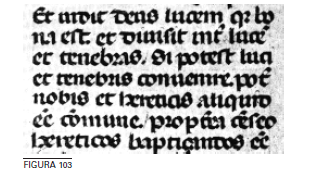 Et uidit deus lucem qr bo
na est et diuisit int luce
et tenebras. Si potest luci
et tenebris conuenire. pot
nobis et hereticis aliquid
ee comune. propterea censeo
hereticos baptizandos ee
FIGURA 103